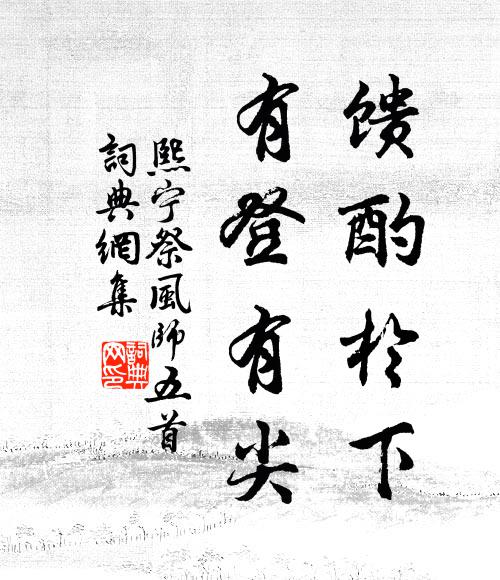 馈酌於下
有登有尖
熙宁祭風师五首
詞典網集
詞典網印